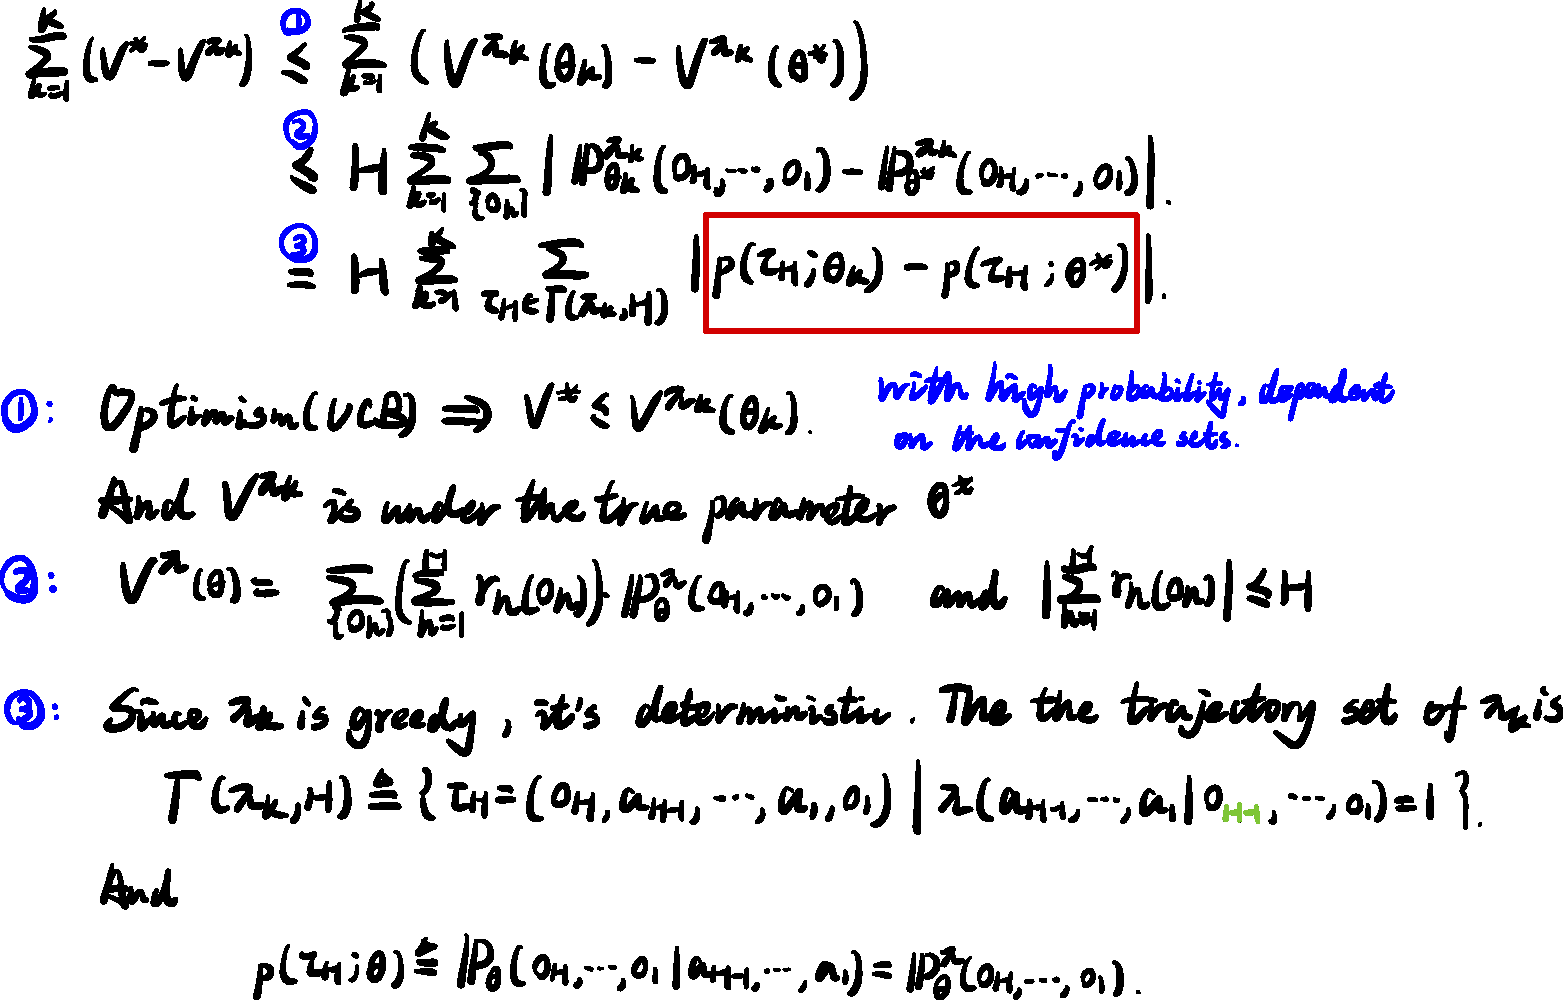 ① \sum_{k=1}^{K} (V^* - V^{\pi_k}) ≤ \sum_{k=1}^{K} (V^{\pi_k}(θ_k) - V^{\pi_k}(θ^*))
② ≤ H \sum_{k=1}^{K} \sum_{\{o_h\}} | ℙ_{θ_k}^{π_k}(o_H, ⋯, o_1) - ℙ_{θ^*}^{π_k}(o_H, ⋯, o_1) |.
③ = H \sum_{k=1}^{K} \sum_{τ_H ∈ Γ(π_k, H)} | p(τ_H; θ_k) - p(τ_H; θ^*) |.
①: Optimism (UCB) ⇒ V^* ≤ V^{π_k}(θ_k). with high probability, dependent
on the confidence sets.
And V^{π_k} is under the true parameter θ^*
②: V^π(θ) = \sum_{\{o_h\}} (\sum_{h=1}^{H} r_h(o_h)) · ℙ_θ^π(o_H, ⋯, o_1) and |\sum_{h=1}^{H} r_h(o_h)| ≤ H
③: Since π_k is greedy, it's deterministic. The the trajectory set of π_k is
Γ(π_k, H) ≜ { τ_H = (o_H, a_{H-1}, ⋯, a_1, o_1) | π(a_{H-1}, ⋯, a_1 | o_{H-1}, ⋯, o_1) = 1 }.
And
p(τ_H; θ) ≜ ℙ_θ(o_H, ⋯, o_1 | a_{H-1}, ⋯, a_1) = ℙ_θ^π(o_H, ⋯, o_1).